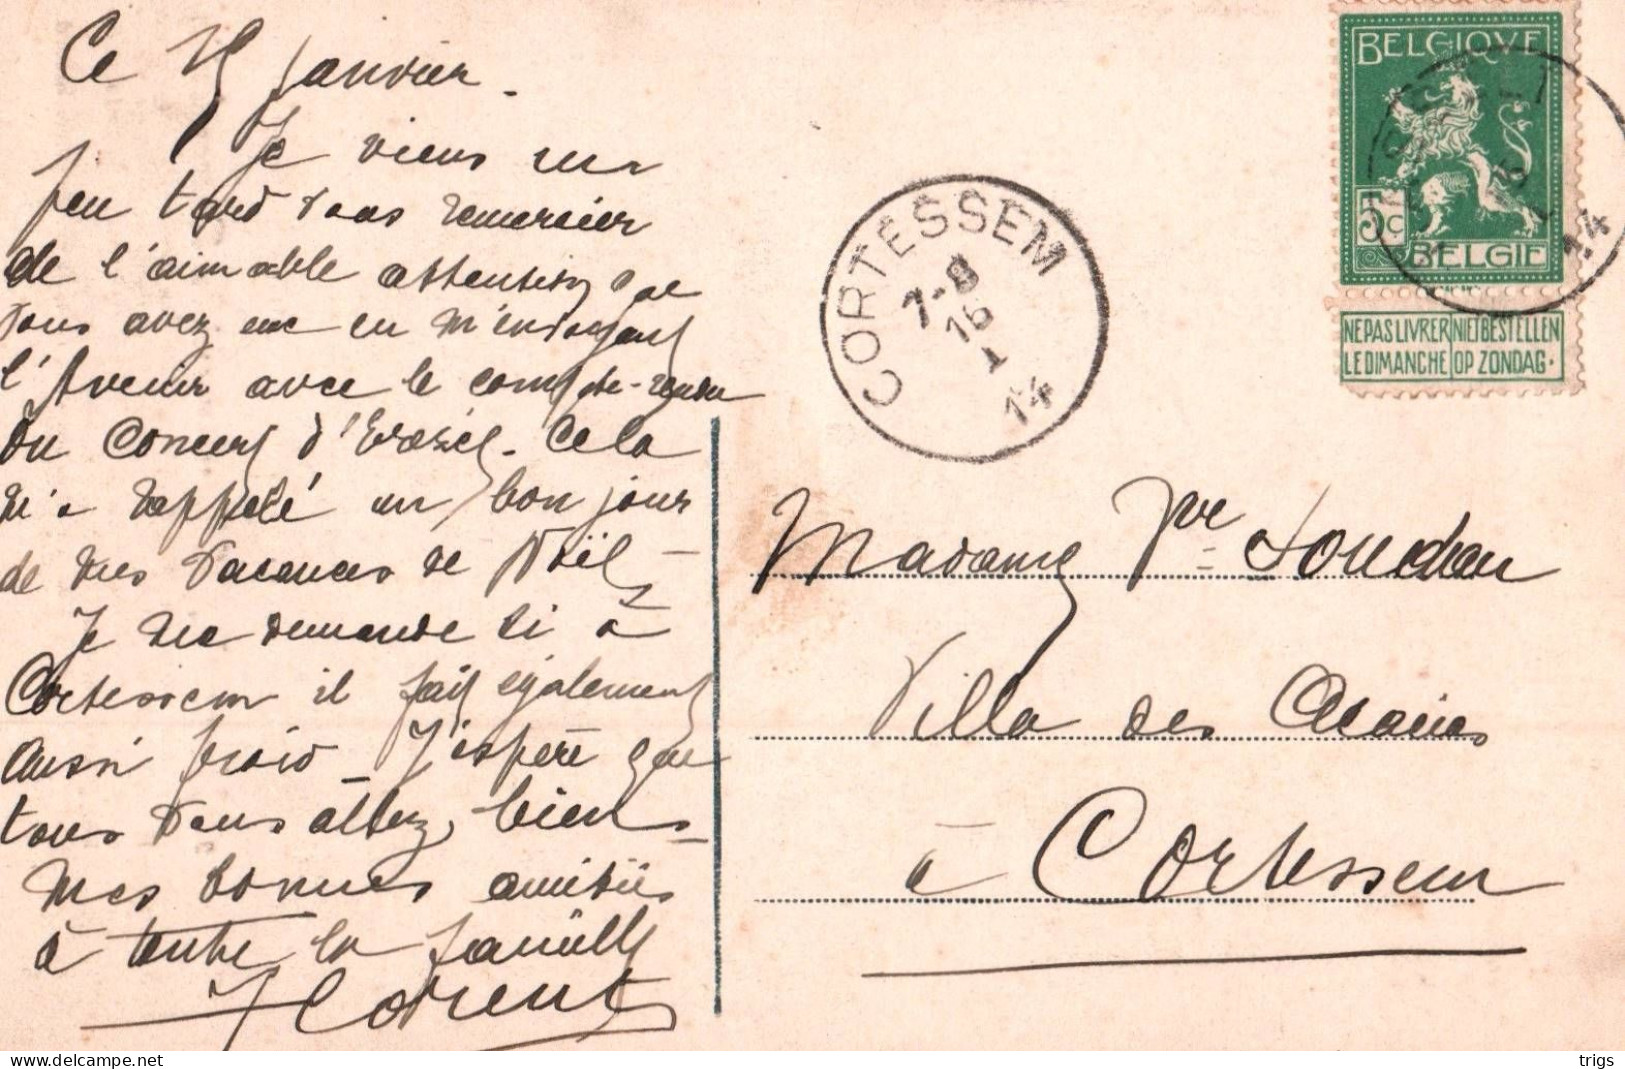 Ce 15 Janvier.
Je viens un
peu tard vous remercier
de l'aimable attention que
vous avez eue en m'envoyant
l'Avenir avec le compte-rendu
du Concert d'
Cela
m'a rappelé un bon jour
de mes vacances de Noël -
Je me demande si à
Cortessem il fait également
aussi froid - J'espère que
tous vous allez bien -
mes bonnes amitiés
à toute la famille
Florent
CORTESSEM
7-8
16
1
14
BELGIQUE
5c
BELGIE
14
NE PAS LIVRER
LE DIMANCHE
NIET BESTELLEN
OP ZONDAG.
Madame
Villa des
à Cortessem
trigs